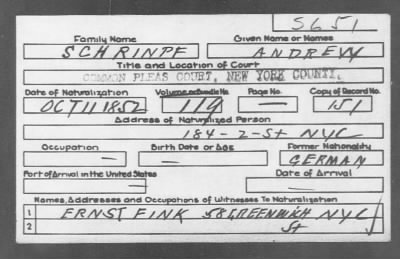 S651
Family Name Given Name or Names
SCHRINPF ANDREW
Title and Location of Court
COMMON PLEAS COURT, NEW YORK COUNTY.
Date of Naturalization Volume or Bundle No. Page No. Copy of Record No.
OCT 11 1852 119 — 151
Address of Naturalized Person
184-2-St NYC
Occupation Birth Date or Age Former Nationality
— — GERMAN
Port of Arrival in the United States Date of Arrival
— —
Names, Addresses and Occupations of Witnesses To Naturalization
1 ERNST FINK 58 GREENWICH NYC
2 St